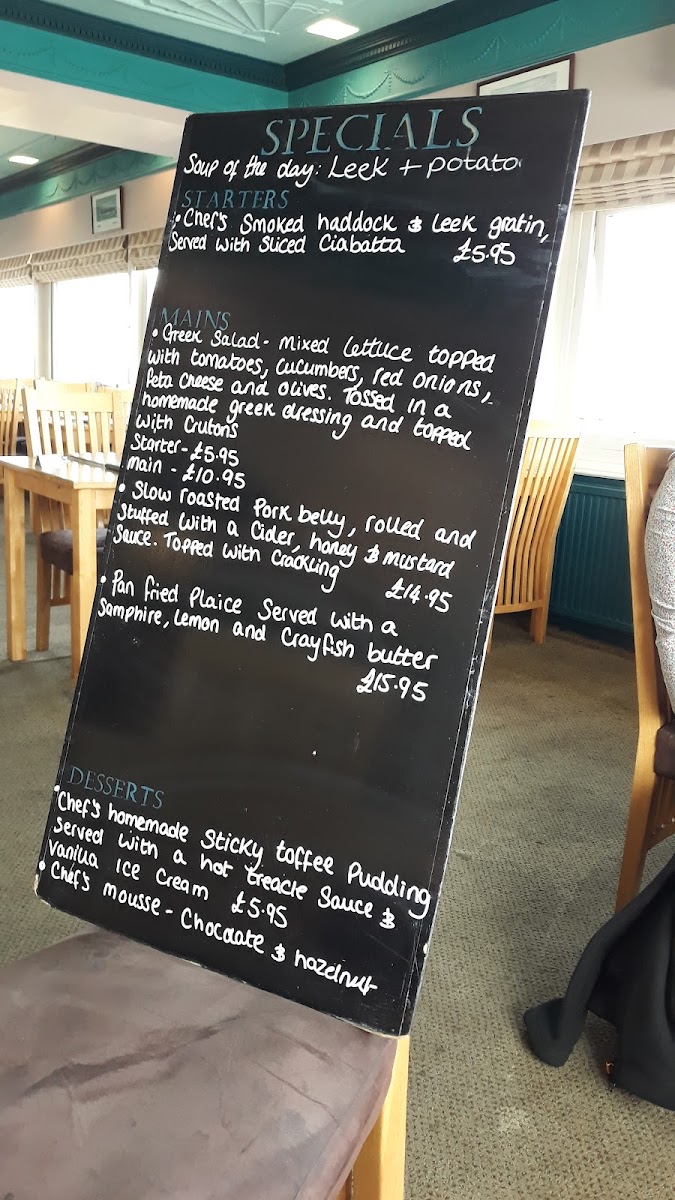 SPECIALS
Soup of the day: Leek + potato
STARTERS
• Chef's Smoked haddock & Leek gratin,
Served with sliced Ciabatta £5.95
MAINS
• Greek Salad - mixed lettuce topped
with tomatoes, cucumbers, red onions,
feta cheese and olives. Tossed in a
homemade greek dressing and topped
with Crutons
Starter - £5.95
main - £10.95
• Slow roasted Pork belly, rolled and
stuffed with a Cider, honey & mustard
sauce. Topped with Crackling £14.95
• Pan fried Plaice Served with a
Samphire, Lemon and Crayfish butter
£15.95
DESSERTS
• Chef's homemade Sticky toffee Pudding
Served with a hot treacle Sauce &
Vanilla Ice Cream £5.95
• Chef's mousse - Chocolate & hazelnut